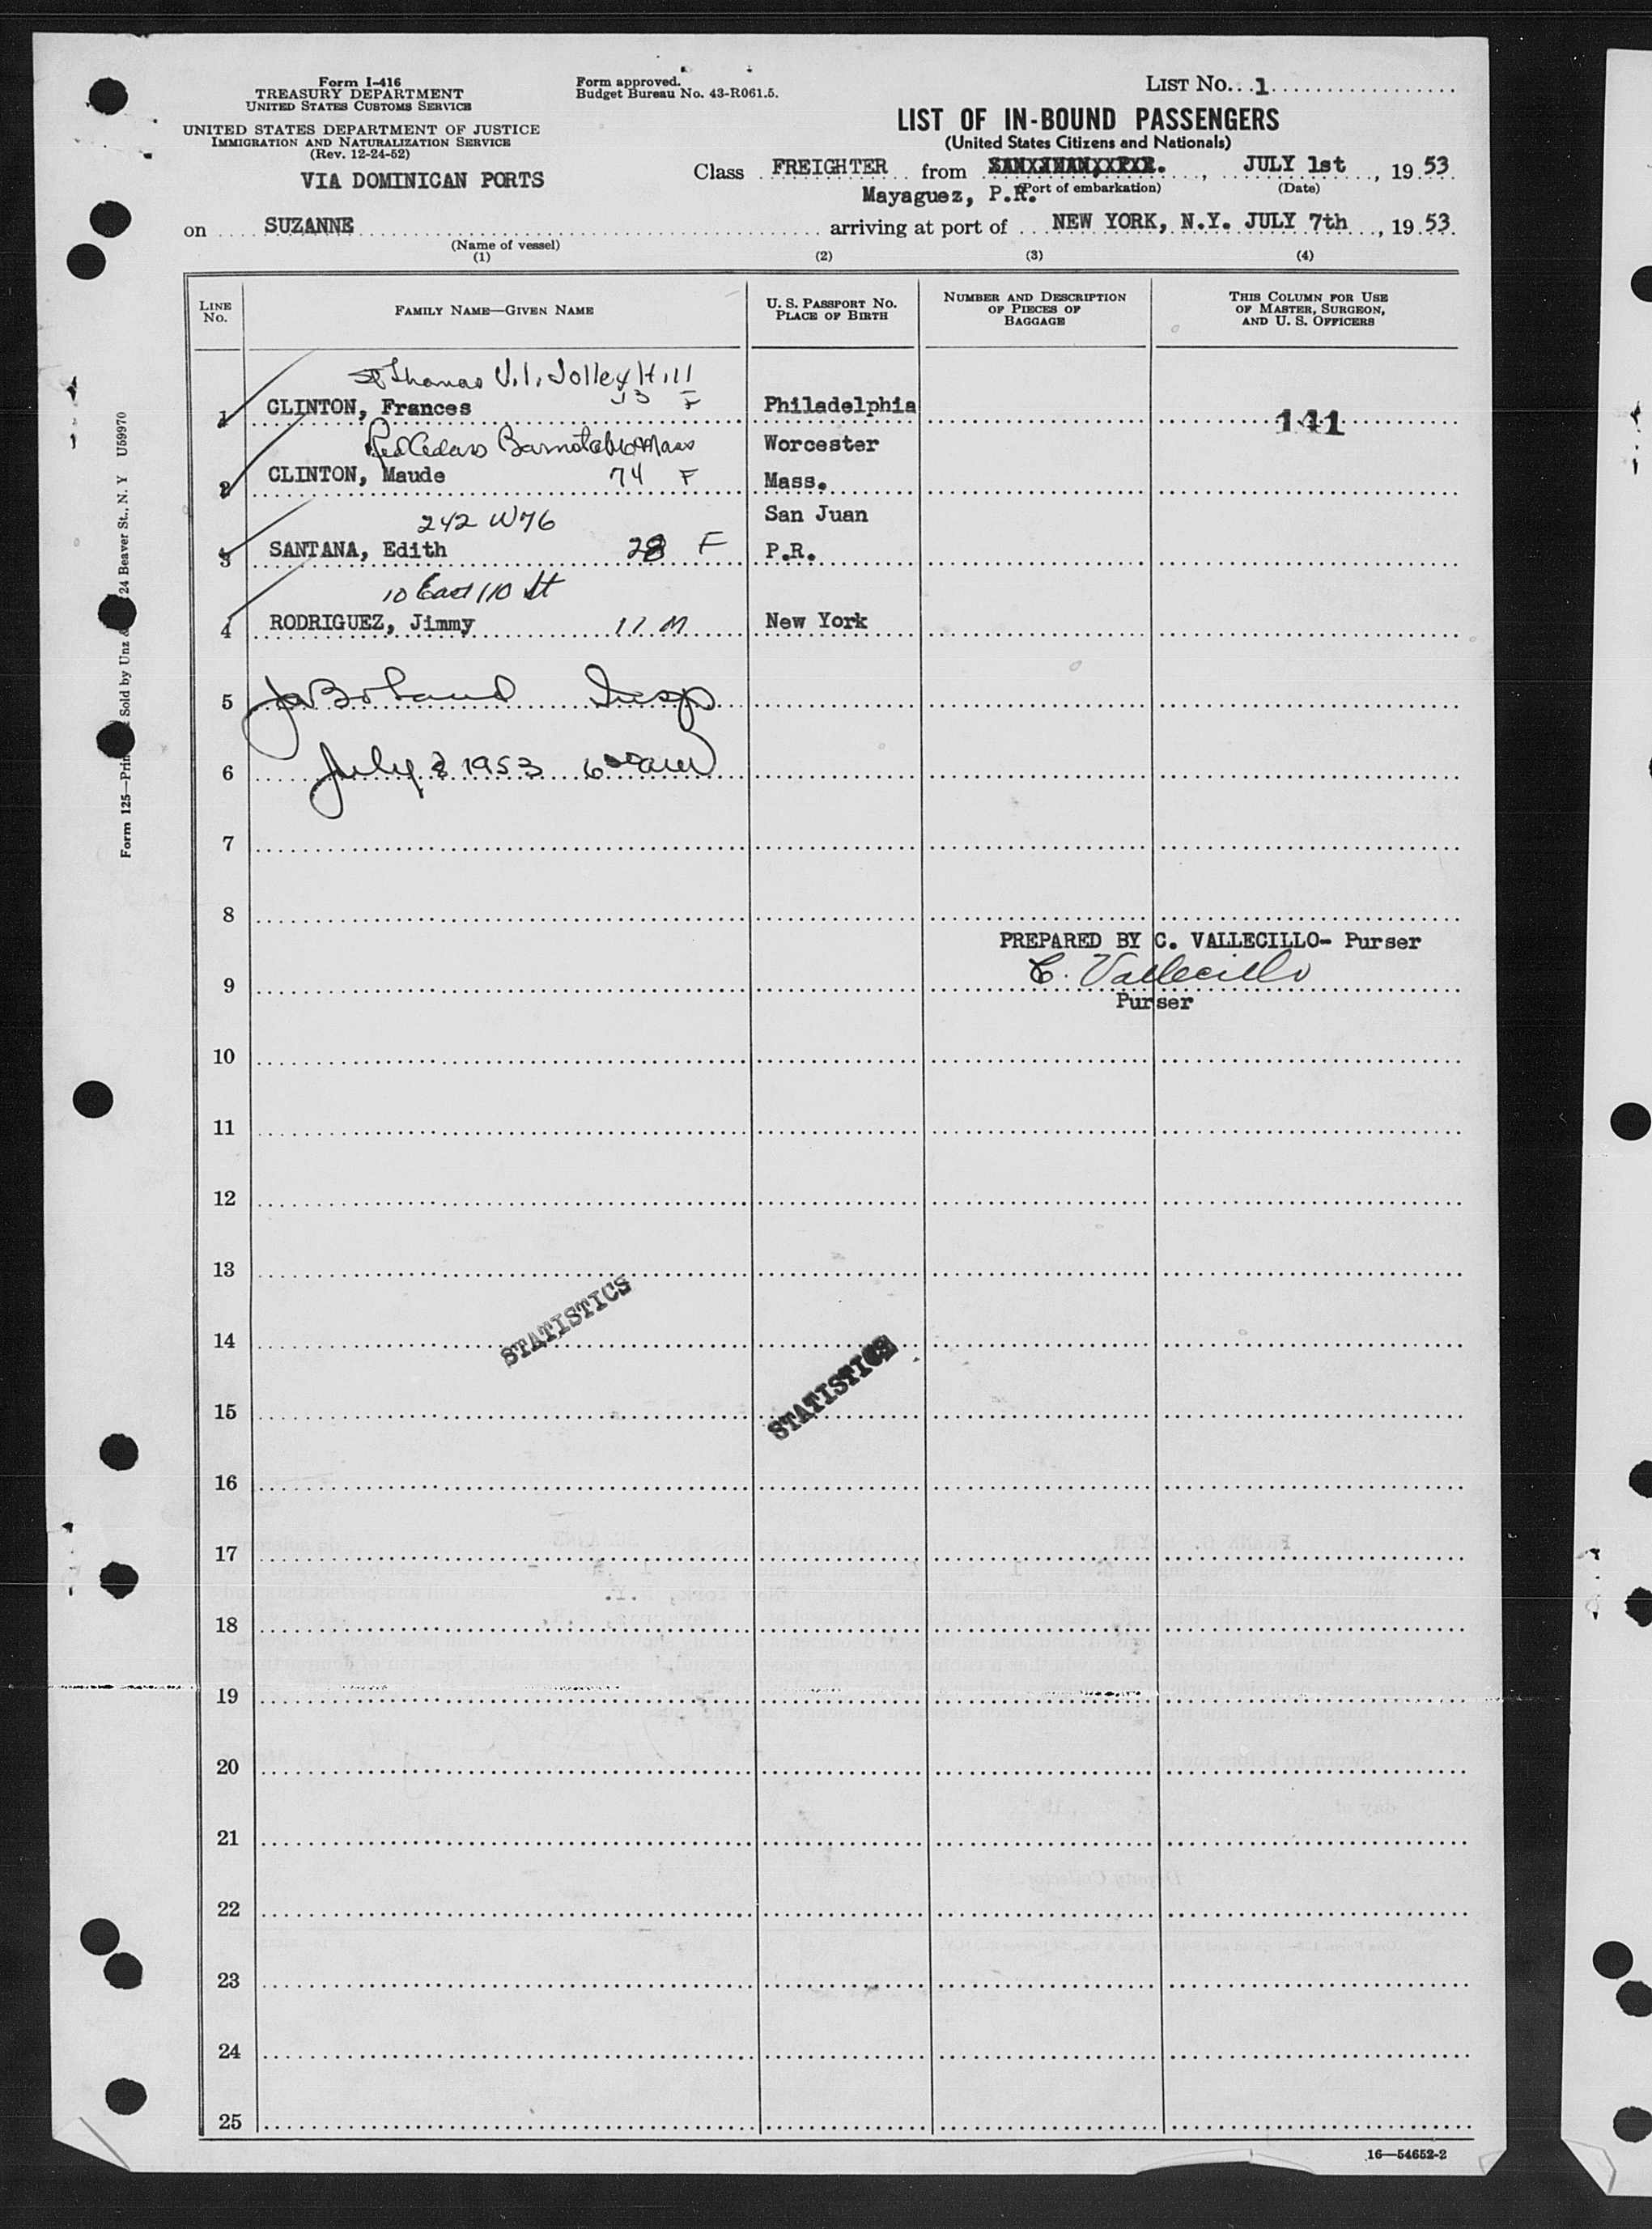 Form I-416
TREASURY DEPARTMENT
UNITED STATES CUSTOMS SERVICE
UNITED STATES DEPARTMENT OF JUSTICE
IMMIGRATION AND NATURALIZATION SERVICE
(Rev. 12-24-52)
VIA DOMINICAN PORTS
Form approved.
Budget Bureau No. 43-R061.5.
LIST No. 1
LIST OF IN-BOUND PASSENGERS
(United States Citizens and Nationals)
Class FREIGHTER from JULY 1st, 1953
Mayaguez, P.R. (Port of embarkation) (Date)
on SUZANNE arriving at port of NEW YORK, N.Y. JULY 7th, 1953.
(Name of vessel)
(1) (2) (3) (4)
LINE No. FAMILY NAME—GIVEN NAME U. S. PASSPORT No. PLACE OF BIRTH NUMBER AND DESCRIPTION OF PIECES OF BAGGAGE THIS COLUMN FOR USE OF MASTER, SURGEON, AND U. S. OFFICERS
St Thomas V.I. Jolley Hill
1 CLINTON, Frances F Philadelphia 141
Red Cedars Barnstable Mass Worcester
2 CLINTON, Maude 74 F Mass.
242 W 76 San Juan
3 SANTANA, Edith 28 F P.R.
10 East 110 St
4 RODRIGUEZ, Jimmy 11 M New York
5 Boland Insp
6 July 1953
7
8
PREPARED BY C. VALLECILLO- Purser
9 C. Vallecillo
Purser
10
11
12
13
STATISTICS
14
STATISTICS
15
16
17
18
19
20
21
22
23
24
25
16—54652-2
Form 125—Sold by Unz & 24 Beaver St., N. Y U59970